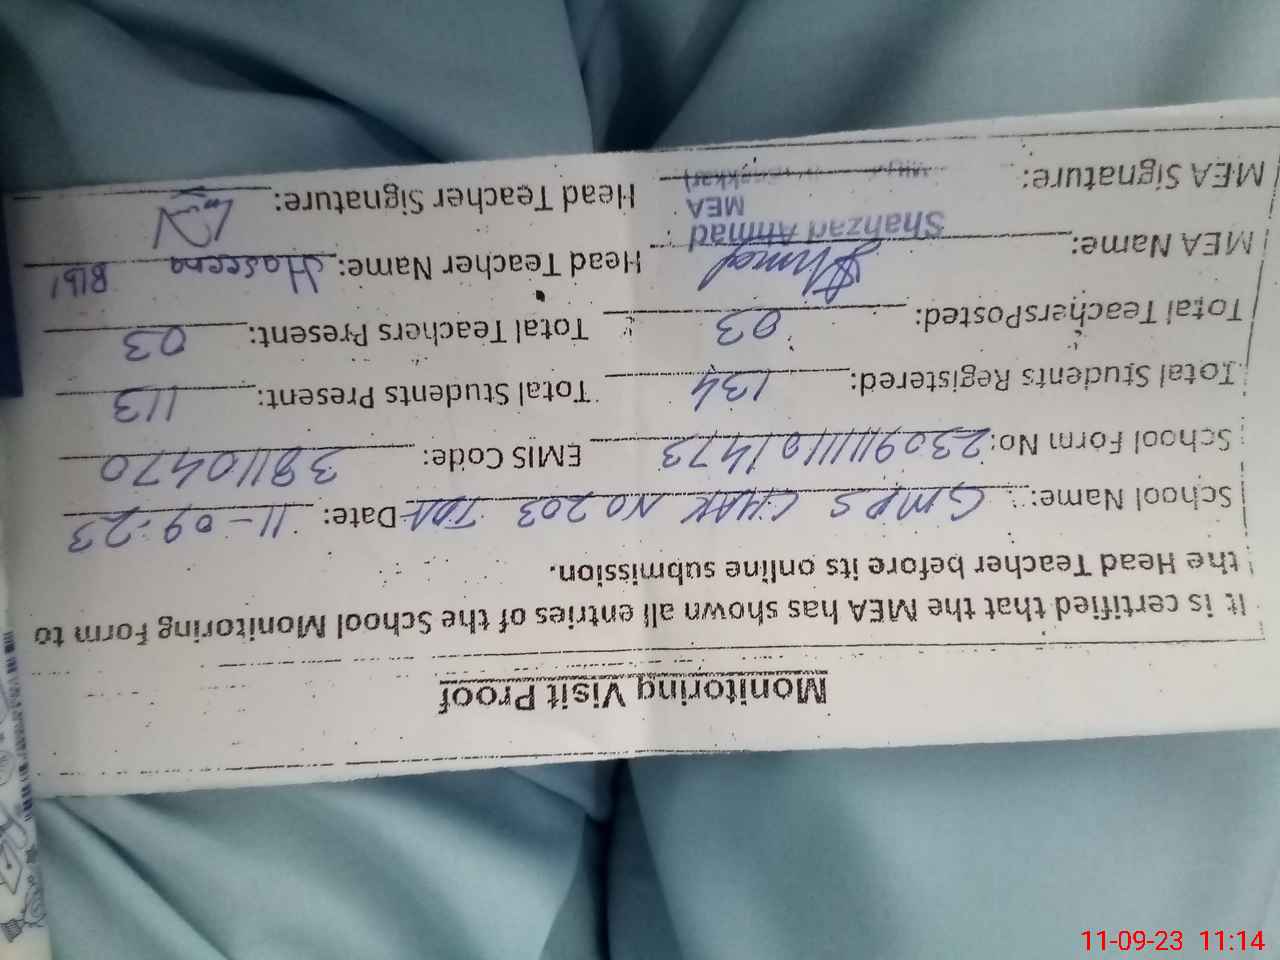 Monitoring Visit Proof
It is certified that the MEA has shown all entries of the School Monitoring Form to
the Head Teacher before its online submission.
School Name: GMPS CHAK NO 203 TDA Date: 11-09-23
School Form No: EMIS Code: 38110470
Total Students Registered: 134 Total Students Present: 113
Total TeachersPosted: 03 Total Teachers Present: 03
MEA Name: Shahzad Ahmad Head Teacher Name: Haseena Bibi
MEA
MEA Signature: Head Teacher Signature:
11-09-23 11:14